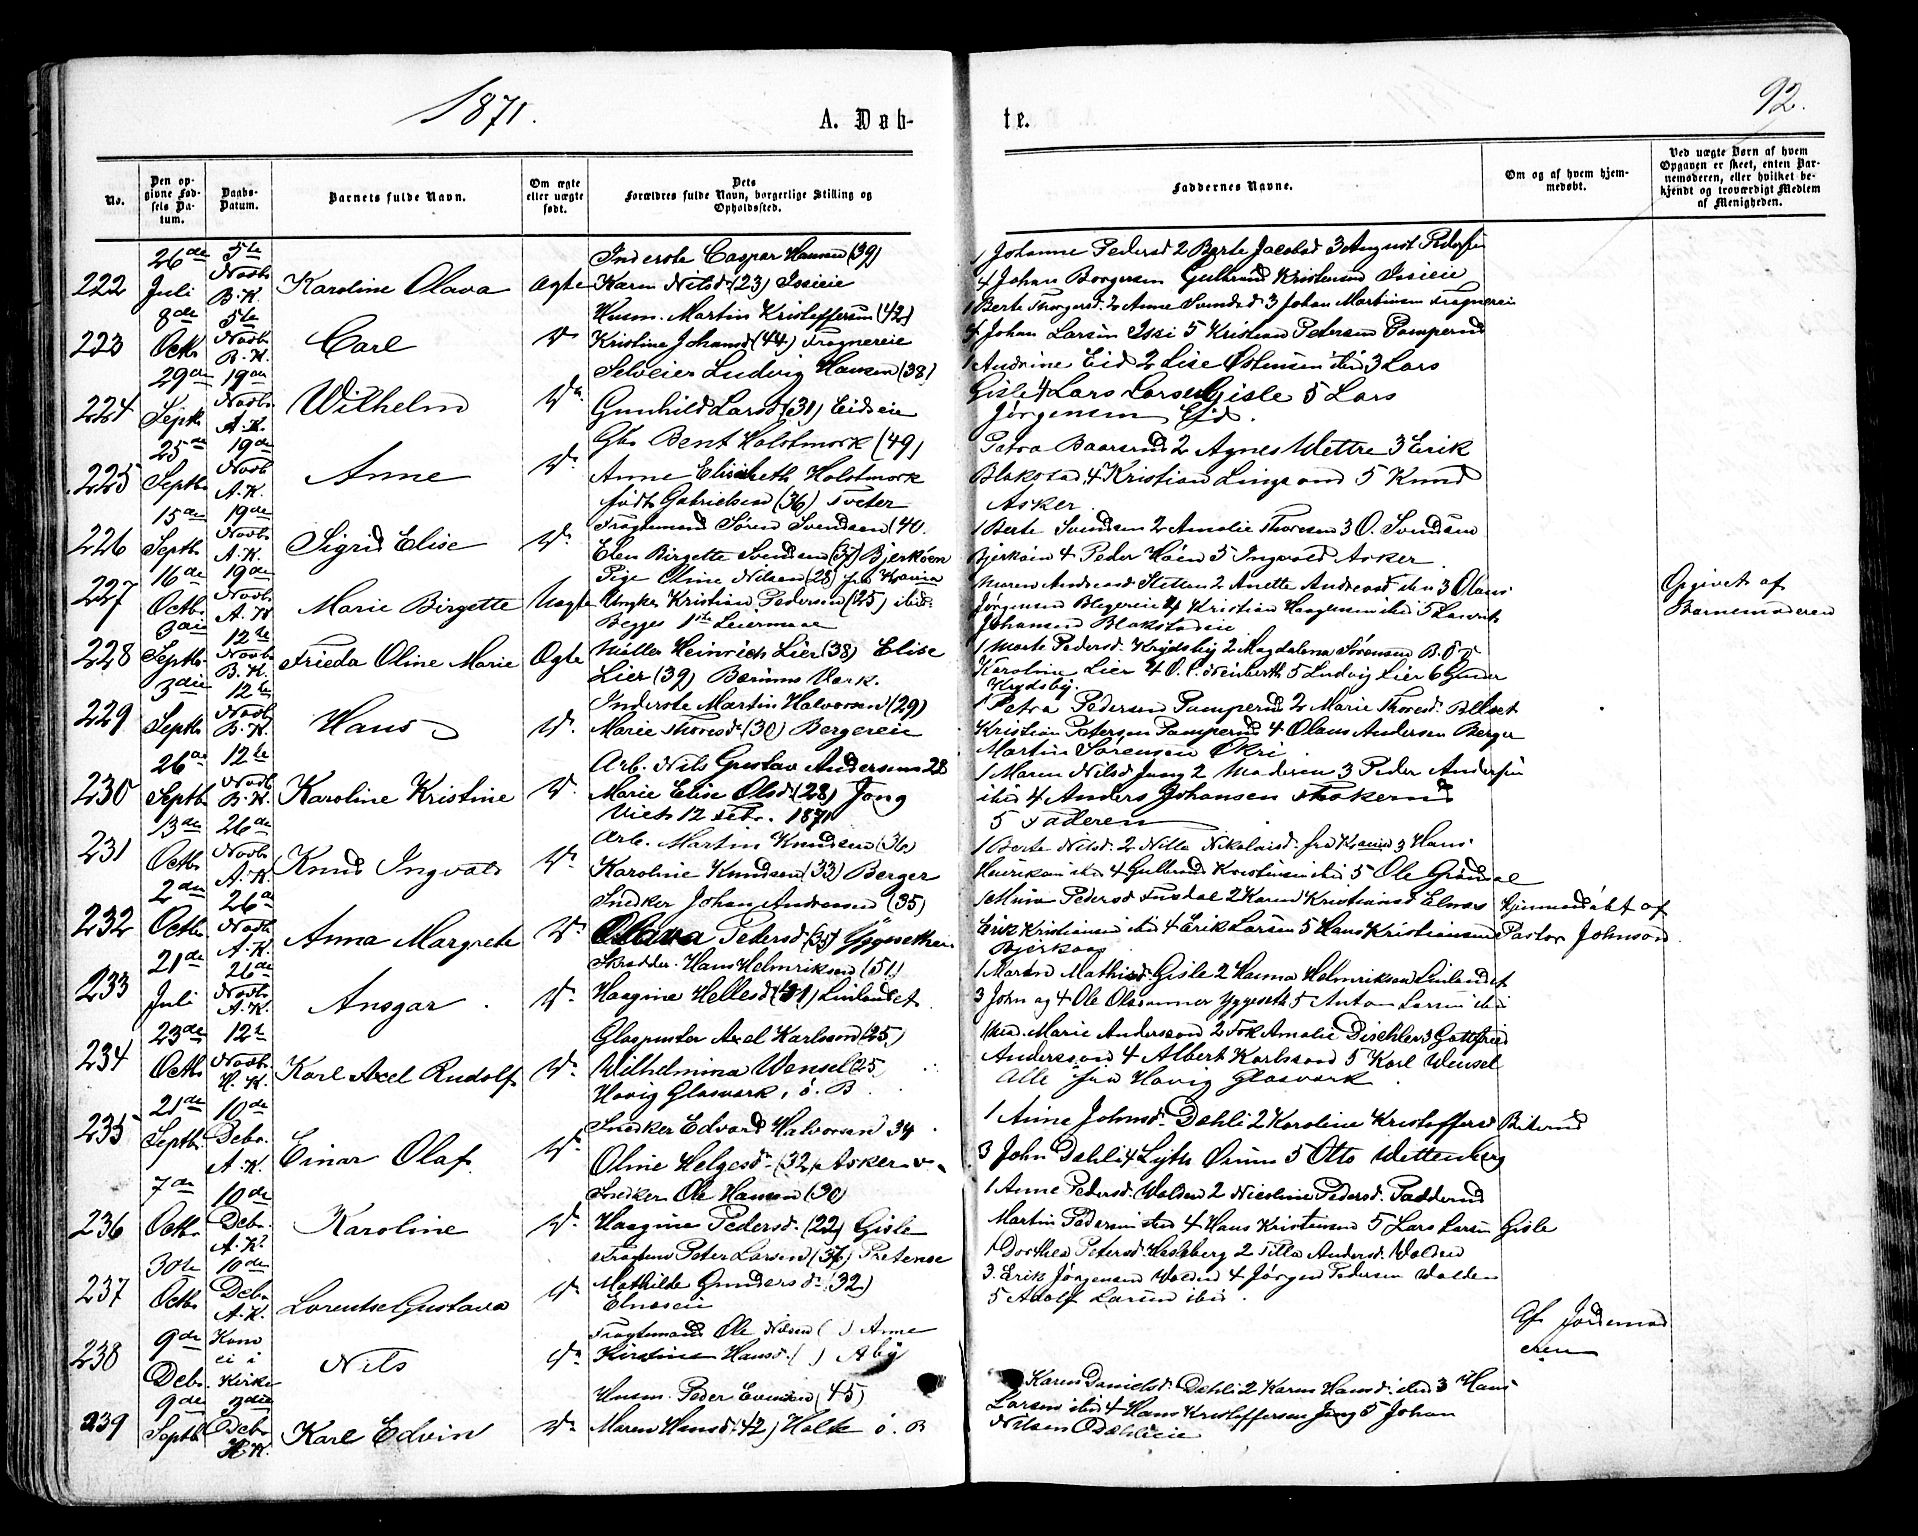 1871.
A. Døb-
te.
92.
No.
Den op-
givne Fød-
sels Da-
tum.
Daabs-
Datum.
Barnets fulde Navn.
Om ægte
eller uægte
født.
Dets
Forældres fulde Navn, borgerlige Stilling og
Opholdssted.
Faddernes Navne.
Om og af hvem hjem-
medøbt.
Ved uægte Børn af hvem
Opgaven er skeet, enten Bar-
nemoderen, eller hvilket be-
kjendt og troværdigt Medlem
af Menigheden.
222
26de
Juli
5te
Novbr
B. K.
Karoline Olava
Ægte
Inderste Caspar Hansen (39)
Karen Nilsd. (23) Issieie
1 Johanne Pedersd 2 Berte Jacobsd 3 August Peders
4 Johan Borgersen Gulbrand Kristensen Issieie
223
8de
Octb.
5te
Novbr
B. K.
Carl
Do
Husm. Martin Kristoffersen (42)
Kristine Johansd (44) Fragnereie
1 Berte Thorgersd. 2 Anne Svendsd 3 Johan Martinsen Fragnereie
4 Johan Larsen Issi 5 Kristian Petersen Pamperud
224
29de
Septb.
19de
Novbr
A. K.
Wilhelm
Do
Selveier Ludvig Hansen (38)
Gunhild Larsd (31) Eidseie
1 Andrine Eid 2 Lise Østensen ibid 3 Lars
Gisle 4 Lars Larsen Gisle 5 Lars
Jørgensen Eid.
225
25de
Septb.
19de
Novbr
A. K.
Anne
Do
Gbr. Bent Holstmork (49)
Anne Elisabeth Holstmork
født Gabrielsen (36) Tveter
Petra Baarsrud 2 Agnes Wettre 3 Erik
Blakstad 4 Kristian Lingsom 5 Knud
Asker.
226
15de
Septb.
19de
Novbr
A. K.
Sigrid Elise
Do
Fragtemand Søren Svendsen (40.
Elen Birgette Svendsen (37) Bjerkøen
1 Berte Svendsen 2 Amalie Thoresen 3 O. Svendsen
Bjerkøen 4 Peder Høen 5 Ingvald Asker.
227
16de
Octb.
19de
Novbr
A. K.
Marie Birgette
Uægte
Pige Oline Nilsen (28) fra
Ungkr Kristian Pedersen (25) ibid.
Begges 1ste Leiermaal
Maren Andreasd Stetten 2 Anette Andreasd ibid 3 Olaus
Jørgensen 4 Kristian Haagensen ibid 5
Johansen Blakstadeie
Opgivet af
Barnemoderen
228
3die
Septb.
12te
Novbr
B. K.
Frieda Oline Marie
Ægte
Møller Heinrich Lier (38) Elise
Lier (39) Bærums Værk.
1 Marte Pedersd. Krydsby 2 Magdalena Sørensen B.
Karoline Lier 4 O. 5 Ludvig Lier 6
Krydsby.
229
3die
Septb.
12te
Novbr
B. K.
Hans
Do
Inderste Martin Halvorsen (29)
Marie Thoresd. (30) Bergereie
1 Petra Pedersen Pamperud 2 Marie Thoresd.
Kristian Petersen Pamperud 4 Olaus Andersen Berger
Martin Sørensen Økri.
230
26de
Septb.
12te
Novbr
B. K.
Karoline Kristine
Do
Arb. Nils Gustav Andersen 28
Marie Elise Olsd. (28) Jong
Viet 12 Febr. 1871
1 Maren Nilsd Jong 2 Moderen 3 Peder Andersen
ibid 4 Anders Johansen
5 Faderen
231
13de
Octb.
26de
Novbr
A. K.
Knud Ingvald
Do
Arb. Martin Knudsen (36)
Karoline Knudsen (33) Berger
1 Berte Nilsd. 2 Nille Nikolaisd. fra 3 Hans
Henriksen ibid 4 Gulbrand Kristensen ibid 5 Ole Grøndal
232
2den
Octb.
26de
Novbr
A. K.
Anna Margrethe
Do
Snedker Johan Andreasen (35)
Olava Pedersd (35) Yggesetheie
Pedersd Fusdal 2 Karen Kristiansd Elnæs
Erik Kristiansen ibid 4 Erik Larsen 5 Hans Kristiansen
Bjerkaas
Hjemmedøbt af
Pastor Johnson.
233
21de
Juli
26de
Novbr
A. K.
Ansgar
Do
Skrædder. Hans Helmriksen (51)
Haagine Hellesd (41) Linlandet
1 Marthe Mathisd Gisle 2 Hanna Helmriksen Linlandet
3 John og 4 Ole Olsønner Yggeseth 5 Anton Larsen ibid
234
23de
Octb.
12te
Novbr
H. K.
Karl Axel Rudolf
Do
Glaspuster Axel Karlsson (25)
Wilhelmina Wensel 25
Høvig Glasværk, ø. B.
Mad. Marie Andersson 2 Frk Amalie Dischler 3 Gottfried
Andersson 4 Albert Karlsson 5 Karl Wensel
Alle fra Høvig Glasværk.
235
21de
Septb.
10de
Debr.
A. K.
Einar Olaf.
Do
Snedker Edvard Halvorsen 34
Oline Helgesd. (32) Asker
1 Anne Johnsd. Dahli 2 Karoline Kristoffersd Bilerud
3 John Dahli 4 5 Otto Wettenberg
236
7de
Octb.
10de
Debr.
A. K.
Karoline
Do
Snedker Ole Hansen (30)
Haagine Pedersd. (22) Gisle
1 Anne Pedersd. Walden 2 Nicoline Pedersd. Padderud
Martin Pedersen ibid 4 Hans Kristensen 5 Lars Larsen Gisle
237
30te
Octb.
10de
Debr.
A. K.
Lorentse Gustava
Do
Fragtem Peter Larsen (36)
Mathilde Gundersd. (32)
Elnæseie
1 Dorthea Petersd. Hasleberg 2 Tilla Andersd. Walden
3. Erik Jørgensen Walden 4 Jørgen Pedersen Walden
5 Adolf Larsen ibid.
238
9de
Debr.
Kom
ei i
Kirke
Nils
Do
Fragtemand Ole Nilsen ( ) Anne
Kirstine Hansd. ( ) Aby
Af Jordemod
eren
239
9de
Septb.
3die
Debr.
H. K.
Karl Edvin
Do
Husm. Peder Evensen (45)
Maren Hansd. 42) Holte ø. B
Karen Danielsd. Dahli 2 Karen Hansd. ibid 3 Hans
Larsen ibid 4 Hans Kristoffersen Jong 5 Johan
Nilsen